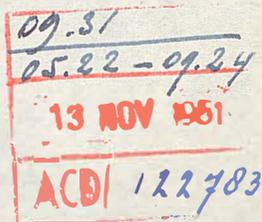 09.31
05.22 - 09.24
13 NOV 1961
ACD 122783